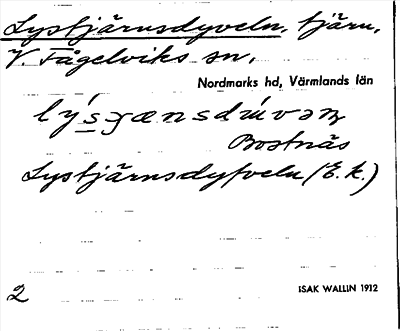 Lystjärnsdyveln, tjärn,
V. Fågelviks sn,
Nordmarks hd, Värmlands län
Bostnäs
Lystjärnsdyfveln (E.k.)
2
ISAK WALLIN 1912